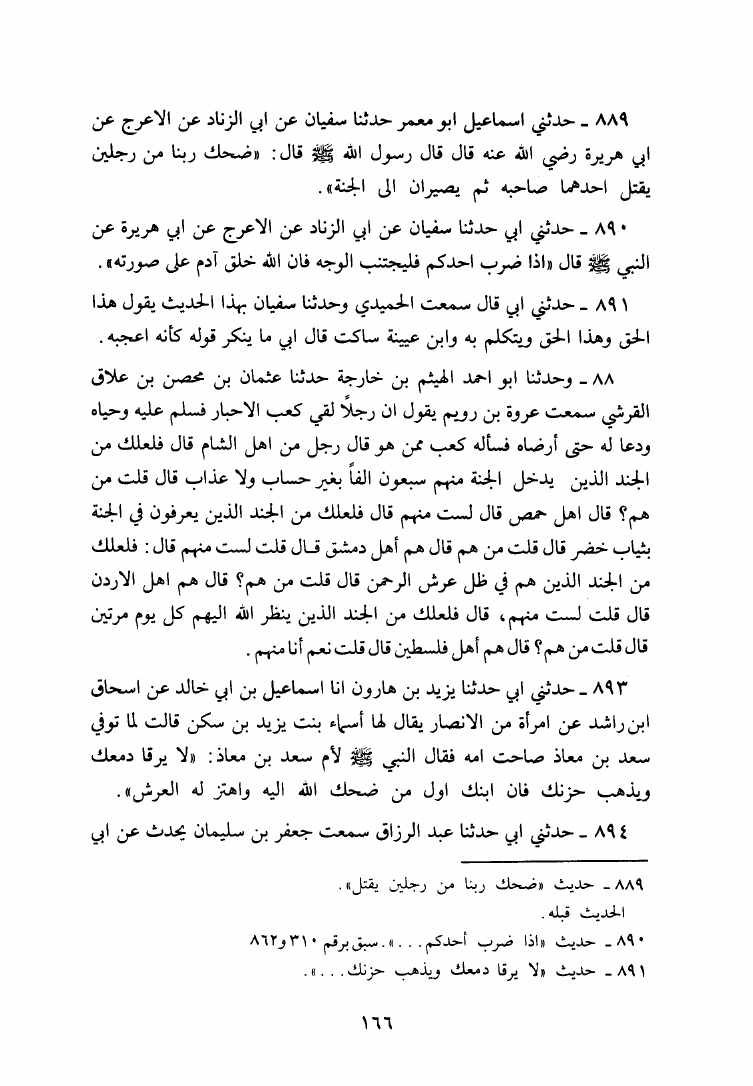 ٨٨٩ ـ حدثني اسماعيل ابو معمر حدثنا سفيان عن ابي الزناد عن الاعرج عن
ابي هريرة رضي الله عنه قال قال رسول الله ﷺ قال: «ضحك ربنا من رجلين
يقتل احدهما صاحبه ثم يصيران الى الجنة».
٨٩٠ ـ حدثني ابي حدثنا سفيان عن ابي الزناد عن الاعرج عن ابي هريرة عن
النبي ﷺ قال «اذا ضرب احدكم فليجتنب الوجه فان الله خلق آدم على صورته».
٨٩١ ـ حدثني ابي قال سمعت الحميدي وحدثنا سفيان بهذا الحديث يقول هذا
الحق وهذا الحق ويتكلم به وابن عيينة ساكت قال ابي ما ينكر قوله كأنه اعجبه.
٨٨ ـ وحدثنا ابو احمد الهيثم بن خارجة حدثنا عثمان بن محصن بن علاق
القرشي سمعت عروة بن رويم يقول ان رجلًا لقي كعب الاحبار فسلم عليه وحياه
ودعا له حتى أرضاه فسأله كعب ممن هو قال رجل من اهل الشام قال فلعلك من
الجند الذين يدخل الجنة منهم سبعون الفاً بغير حساب ولا عذاب قال قلت من
هم؟ قال اهل حمص قال لست منهم قال فلعلك من الجند الذين يعرفون في الجنة
بثياب خضر قال قلت من هم قال هم أهل دمشق قال قلت لست منهم قال: فلعلك
من الجند الذين هم في ظل عرش الرحمن قال قلت من هم؟ قال هم اهل الاردن
قال قلت لست منهم، قال فلعلك من الجند الذين ينظر الله اليهم كل يوم مرتين
قال قلت من هم؟ قال هم أهل فلسطين قال قلت نعم أنا منهم.
٨٩٣ ـ حدثني ابي حدثنا يزيد بن هارون انا اسماعيل بن ابي خالد عن اسحاق
ابن راشد عن امرأة من الانصار يقال لها أسماء بنت يزيد بن سكن قالت لما توفي
سعد بن معاذ صاحت امه فقال النبي ﷺ لأم سعد بن معاذ: «لا يرقا دمعك
ويذهب حزنك فان ابنك اول من ضحك الله اليه واهتز له العرش».
٨٩٤ ـ حدثني ابي حدثنا عبد الرزاق سمعت جعفر بن سليمان يحدث عن ابي
٨٨٩ ـ حديث «ضحك ربنا من رجلين يقتل».
الحديث قبله.
٨٩٠ ـ حديث «اذا ضرب أحدكم...». سبق برقم ٣١٠ و٨٦٢
٨٩١ ـ حديث «لا يرقا دمعك ويذهب حزنك...».
١٦٦